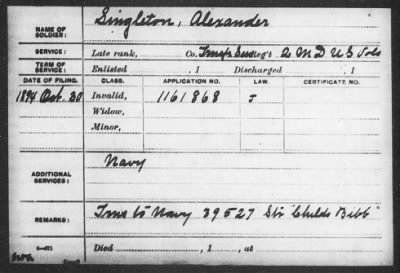 NAME OF SOLDIER: Singleton, Alexander
SERVICE: Late rank, Co. Reg't 2 M D U S Vols
TERM OF SERVICE: Enlisted , 1 Discharged , 1
DATE OF FILING. CLASS. APPLICATION NO. LAW. CERTIFICATE NO.
1894 Oct. 30 Invalid, 1161868 J
Widow,
Minor,
ADDITIONAL SERVICES: Navy
REMARKS: Trns to Navy 39527 Str "Childs Bibb"
Died , 1 , at